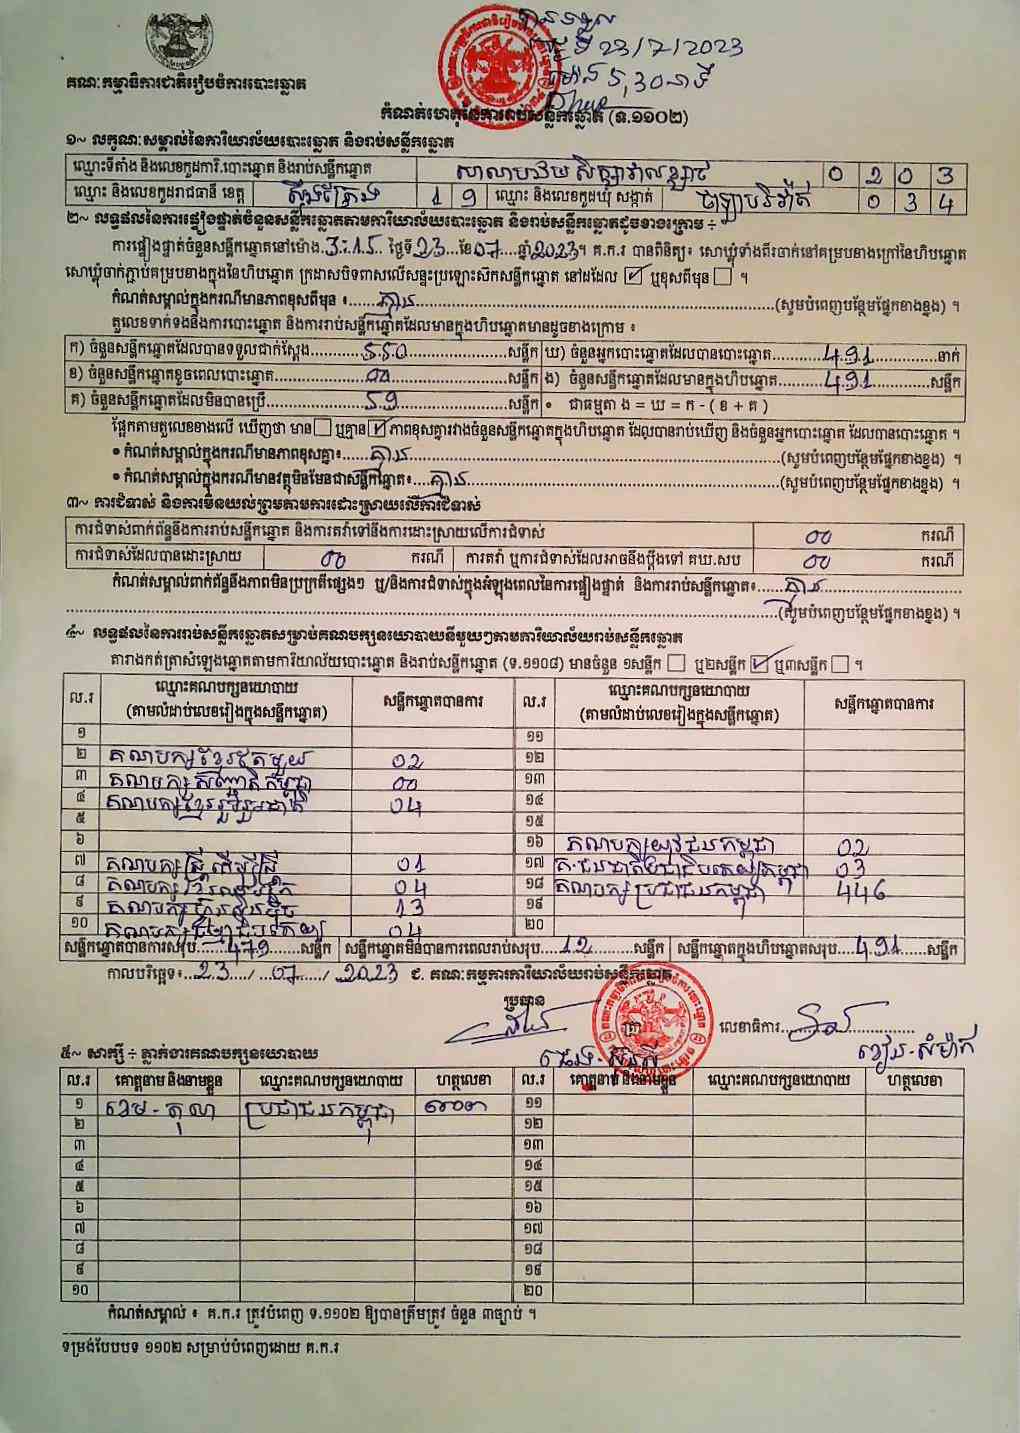 បានទទួល
ថ្ងៃទី 23/7/2023
ម៉ោង 5,30 នាទី
គណៈកម្មាធិការជាតិរៀបចំការបោះឆ្នោត
កំណត់ហេតុនៃការរាប់សន្លឹកឆ្នោត (ទ.១១០២)
១~ លក្ខណៈសម្គាល់នៃការិយាល័យបោះឆ្នោត និងរាប់សន្លឹកឆ្នោត
ឈ្មោះទីតាំង និងលេខកូដការិ.បោះឆ្នោត និងរាប់សន្លឹកឆ្នោត សាលាបឋមសិក្សាវាលខ្សាច់ 0 2 0 3
ឈ្មោះ និងលេខកូដរាជធានី ខេត្ត ស្ទឹងត្រែង 1 9 ឈ្មោះ និងលេខកូដឃុំ សង្កាត់ ថាឡាបរិវ៉ាត់ 0 3 4
២~ លទ្ធផលនៃការផ្ទៀងផ្ទាត់ចំនួនសន្លឹកឆ្នោតតាមការិយាល័យបោះឆ្នោត និងរាប់សន្លឹកឆ្នោតដូចខាងក្រោម ÷
ការផ្ទៀងផ្ទាត់ចំនួនសន្លឹកឆ្នោតនៅម៉ោង 3:15 ថ្ងៃទី 23 ខែ 07 ឆ្នាំ 2023។ គ.ក.រ បានពិនិត្យ៖ សោឃ្លុំទាំងពីរចាក់នៅគម្របខាងក្រៅនៃហិបឆ្នោត
សោឃ្លុំចាក់ភ្ជាប់គម្របខាងក្នុងនៃហិបឆ្នោត ក្រដាសបិទពាសលើសន្ទះប្រឡោះសឹកសន្លឹកឆ្នោត នៅដដែល ☑ ឬខុសពីមុន ☐ ។
កំណត់សម្គាល់ក្នុងករណីមានភាពខុសពីមុន ៖ គ្មាន (សូមបំពេញបន្ថែមផ្នែកខាងខ្នង) ។
តួលេខទាក់ទងនឹងការបោះឆ្នោត និងការរាប់សន្លឹកឆ្នោតដែលមានក្នុងហិបឆ្នោតមានដូចខាងក្រោម ៖
ក) ចំនួនសន្លឹកឆ្នោតដែលបានទទួលជាក់ស្តែង 550 សន្លឹក ឃ) ចំនួនអ្នកបោះឆ្នោតដែលបានបោះឆ្នោត 491 នាក់
ខ) ចំនួនសន្លឹកឆ្នោតខូចពេលបោះឆ្នោត 00 សន្លឹក ង) ចំនួនសន្លឹកឆ្នោតដែលមានក្នុងហិបឆ្នោត 491 សន្លឹក
គ) ចំនួនសន្លឹកឆ្នោតដែលមិនបានប្រើ 59 សន្លឹក • ជាធម្មតា ង = ឃ = ក - ( ខ + គ )
ផ្អែកតាមតួលេខខាងលើ ឃើញថា មាន ☐ ឬគ្មាន ☑ ភាពខុសគ្នារវាងចំនួនសន្លឹកឆ្នោតក្នុងហិបឆ្នោត ដែលបានរាប់ឃើញ និងចំនួនអ្នកបោះឆ្នោត ដែលបានបោះឆ្នោត ។
• កំណត់សម្គាល់ក្នុងករណីមានភាពខុសគ្នា៖ គ្មាន (សូមបំពេញបន្ថែមផ្នែកខាងខ្នង) ។
• កំណត់សម្គាល់ក្នុងករណីមានវត្ថុមិនមែនជាសន្លឹកឆ្នោត៖ គ្មាន (សូមបំពេញបន្ថែមផ្នែកខាងខ្នង) ។
៣~ ការជំទាស់ និងការមិនយល់ព្រមតាមការដោះស្រាយលើការជំទាស់
ការជំទាស់ពាក់ព័ន្ធនឹងការរាប់សន្លឹកឆ្នោត និងការតវ៉ាទៅនឹងការដោះស្រាយលើការជំទាស់ 00 ករណី
ការជំទាស់ដែលបានដោះស្រាយ 00 ករណី ការតវ៉ា ឬការជំទាស់ដែលអាចនឹងប្តឹងទៅ គឃ.សប 00 ករណី
កំណត់សម្គាល់ពាក់ព័ន្ធនឹងភាពមិនប្រក្រតីផ្សេងៗ ឬ/និងការជំទាស់ក្នុងអំឡុងពេលនៃការផ្ទៀងផ្ទាត់ និងការរាប់សន្លឹកឆ្នោត៖ គ្មាន
(សូមបំពេញបន្ថែមផ្នែកខាងខ្នង) ។
៤~ លទ្ធផលនៃការរាប់សន្លឹកឆ្នោតសម្រាប់គណបក្សនយោបាយនីមួយៗតាមការិយាល័យរាប់សន្លឹកឆ្នោត
តារាងកត់ត្រាសំឡេងឆ្នោតតាមការិយាល័យបោះឆ្នោត និងរាប់សន្លឹកឆ្នោត (ទ.១១០៨) មានចំនួន ១សន្លឹក ☐ ឬ២សន្លឹក ☑ ឬ៣សន្លឹក ☐ ។
ល.រ ឈ្មោះគណបក្សនយោបាយ (តាមលំដាប់លេខរៀងក្នុងសន្លឹកឆ្នោត) សន្លឹកឆ្នោតបានការ ល.រ ឈ្មោះគណបក្សនយោបាយ (តាមលំដាប់លេខរៀងក្នុងសន្លឹកឆ្នោត) សន្លឹកឆ្នោតបានការ
១ ១១
២ គណបក្សខ្មែរតែមួយ 02 ១២
៣ គណបក្សសញ្ជាតិកម្ពុជា 00 ១៣
៤ គណបក្សខ្មែររួបរួមជាតិ 04 ១៤
៥ ១៥
៦ ១៦ គណបក្សយុវជនកម្ពុជា 02
៧ គណបក្សស្ត្រីដើម្បីស្ត្រី 01 ១៧ គ.ជនជាតិប្រជាធិបតេយ្យកម្ពុជា 03
៨ 04 ១៨ គណបក្សប្រជាជនកម្ពុជា 446
៩ គណបក្សហ្វ៊ុនស៊ិនប៉ិច 13 ១៩
១០ 04 ២០
សន្លឹកឆ្នោតបានការសរុប 479 សន្លឹក សន្លឹកឆ្នោតមិនបានការពេលរាប់សរុប 12 សន្លឹក សន្លឹកឆ្នោតក្នុងហិបឆ្នោតសរុប 491 សន្លឹក
កាលបរិច្ឆេទ៖ 23/07/2023 ជ. គណៈកម្មការការិយាល័យរាប់សន្លឹកឆ្នោត
ប្រធាន ត្រា លេខាធិការ
៥~ សាក្សី ÷ ភ្នាក់ងារគណបក្សនយោបាយ
ល.រ គោត្តនាម និងនាមខ្លួន ឈ្មោះគណបក្សនយោបាយ ហត្ថលេខា ល.រ គោត្តនាម និងនាមខ្លួន ឈ្មោះគណបក្សនយោបាយ ហត្ថលេខា
១ ខេម - តុលា ប្រជាជនកម្ពុជា ១១
២ ១២
៣ ១៣
៤ ១៤
៥ ១៥
៦ ១៦
៧ ១៧
៨ ១៨
៩ ១៩
១០ ២០
កំណត់សម្គាល់ ៖ គ.ក.រ ត្រូវបំពេញ ទ.១១០២ ឱ្យបានត្រឹមត្រូវ ចំនួន ៣ច្បាប់ ។
ទម្រង់បែបបទ ១១០២ សម្រាប់បំពេញដោយ គ.ក.រ